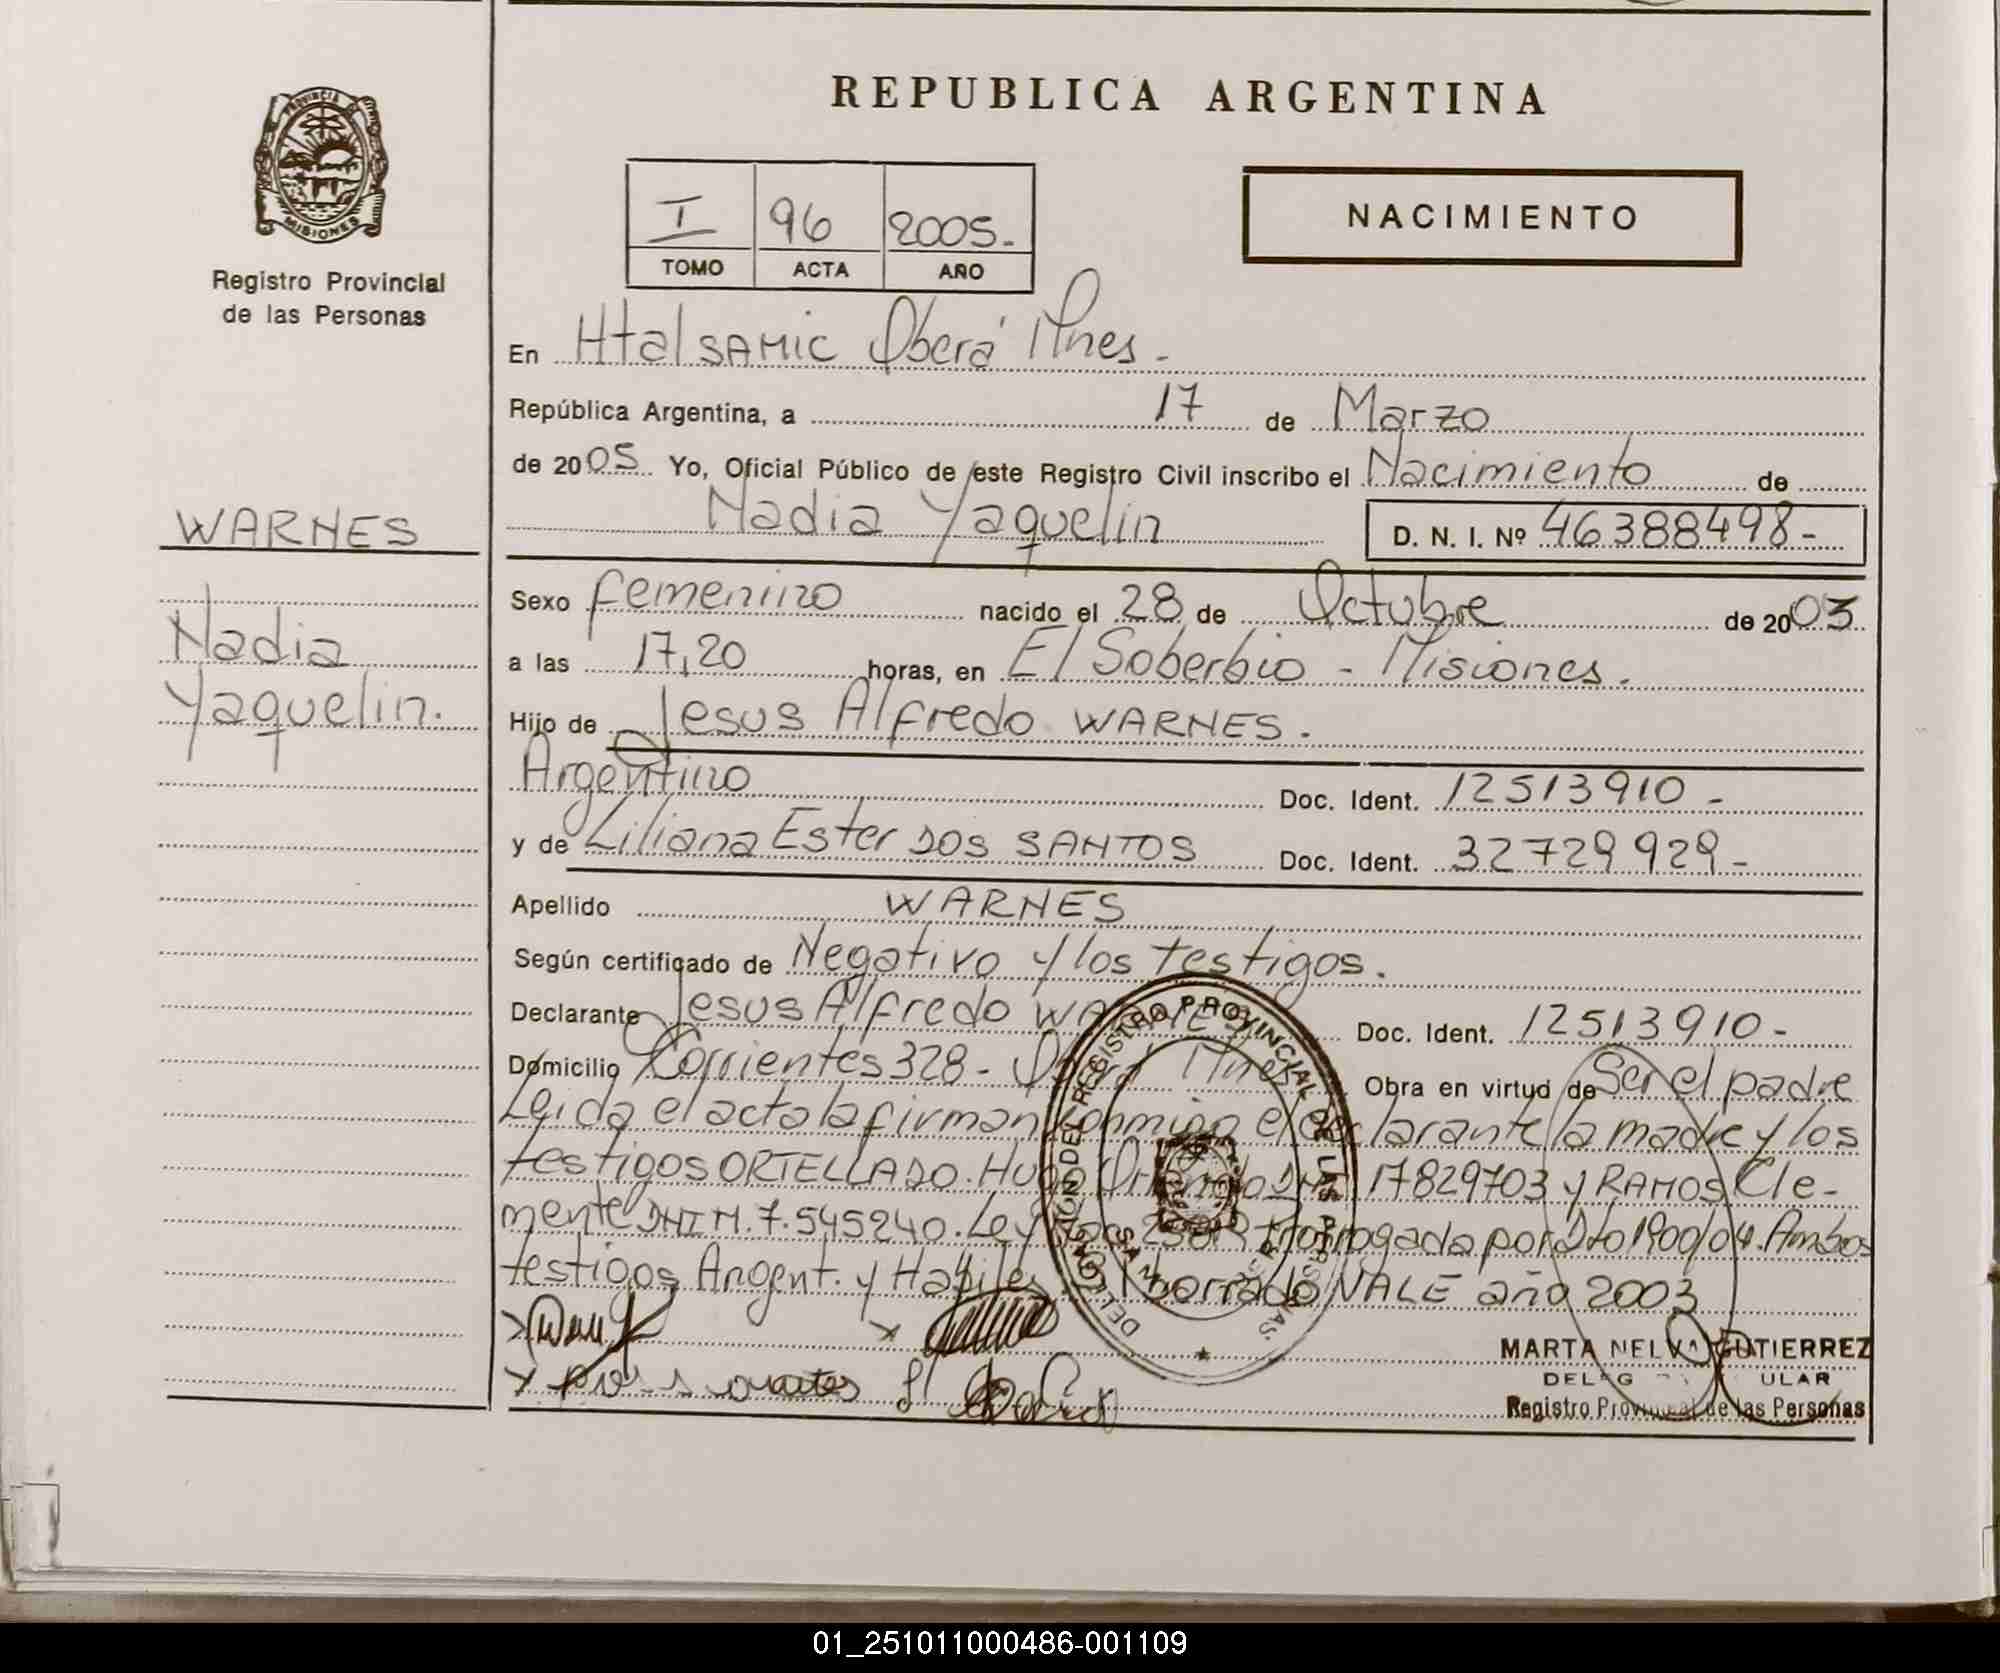 REPUBLICA ARGENTINA
PROVINCIA DE
MISIONES
Registro Provincial
de las Personas
I 96 2005.-
TOMO ACTA AÑO
NACIMIENTO
En Htal SAMIC Oberá Mnes.-
República Argentina, a 17 de Marzo
de 2005 Yo, Oficial Público de este Registro Civil inscribo el Nacimiento de
Nadia Yaquelin D. N. I. Nº 46388498-
WARNES
Nadia
Yaquelin.
Sexo femenino nacido el 28 de Octubre de 2003
a las 17,20 horas, en El Soberbio - Misiones.
Hijo de Jesus Alfredo WARNES.
Argentino Doc. Ident. 12513910-
y de Liliana Ester DOS SANTOS Doc. Ident. 32729929-
Apellido WARNES
Según certificado de Negativo y los testigos.
Declarante Jesus Alfredo WARNES Doc. Ident. 12513910-
Domicilio Corrientes 328- Oberá Mnes Obra en virtud de Ser el padre
Leida el acta la firman conmigo el declarante la madre y los
testigos ORTELLADO. Hugo DNI 17829703 y RAMOS Cle-
mente DNI M. 7.545240. Ley prorrogada por Dto 1900/04. Ambos
testigos Argent. y Habiles. borrado VALE año 2003
DELEGACION DEL REGISTRO PROVINCIAL DE LAS PERSONAS
MARTA NELVA GUTIERREZ
Registro Provincial de las Personas
01_251011000486-001109